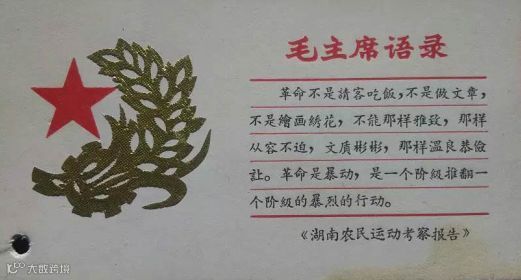 毛主席语录
革命不是請客吃飯，不是做文章，
不是繪画綉花，不能那样雅致，那样
从容不迫，文质彬彬，那样温良恭儉
让。革命是暴动，是一个阶級推翻一
个阶級的暴烈的行动。
《湖南农民运动考察报告》
大数跨境